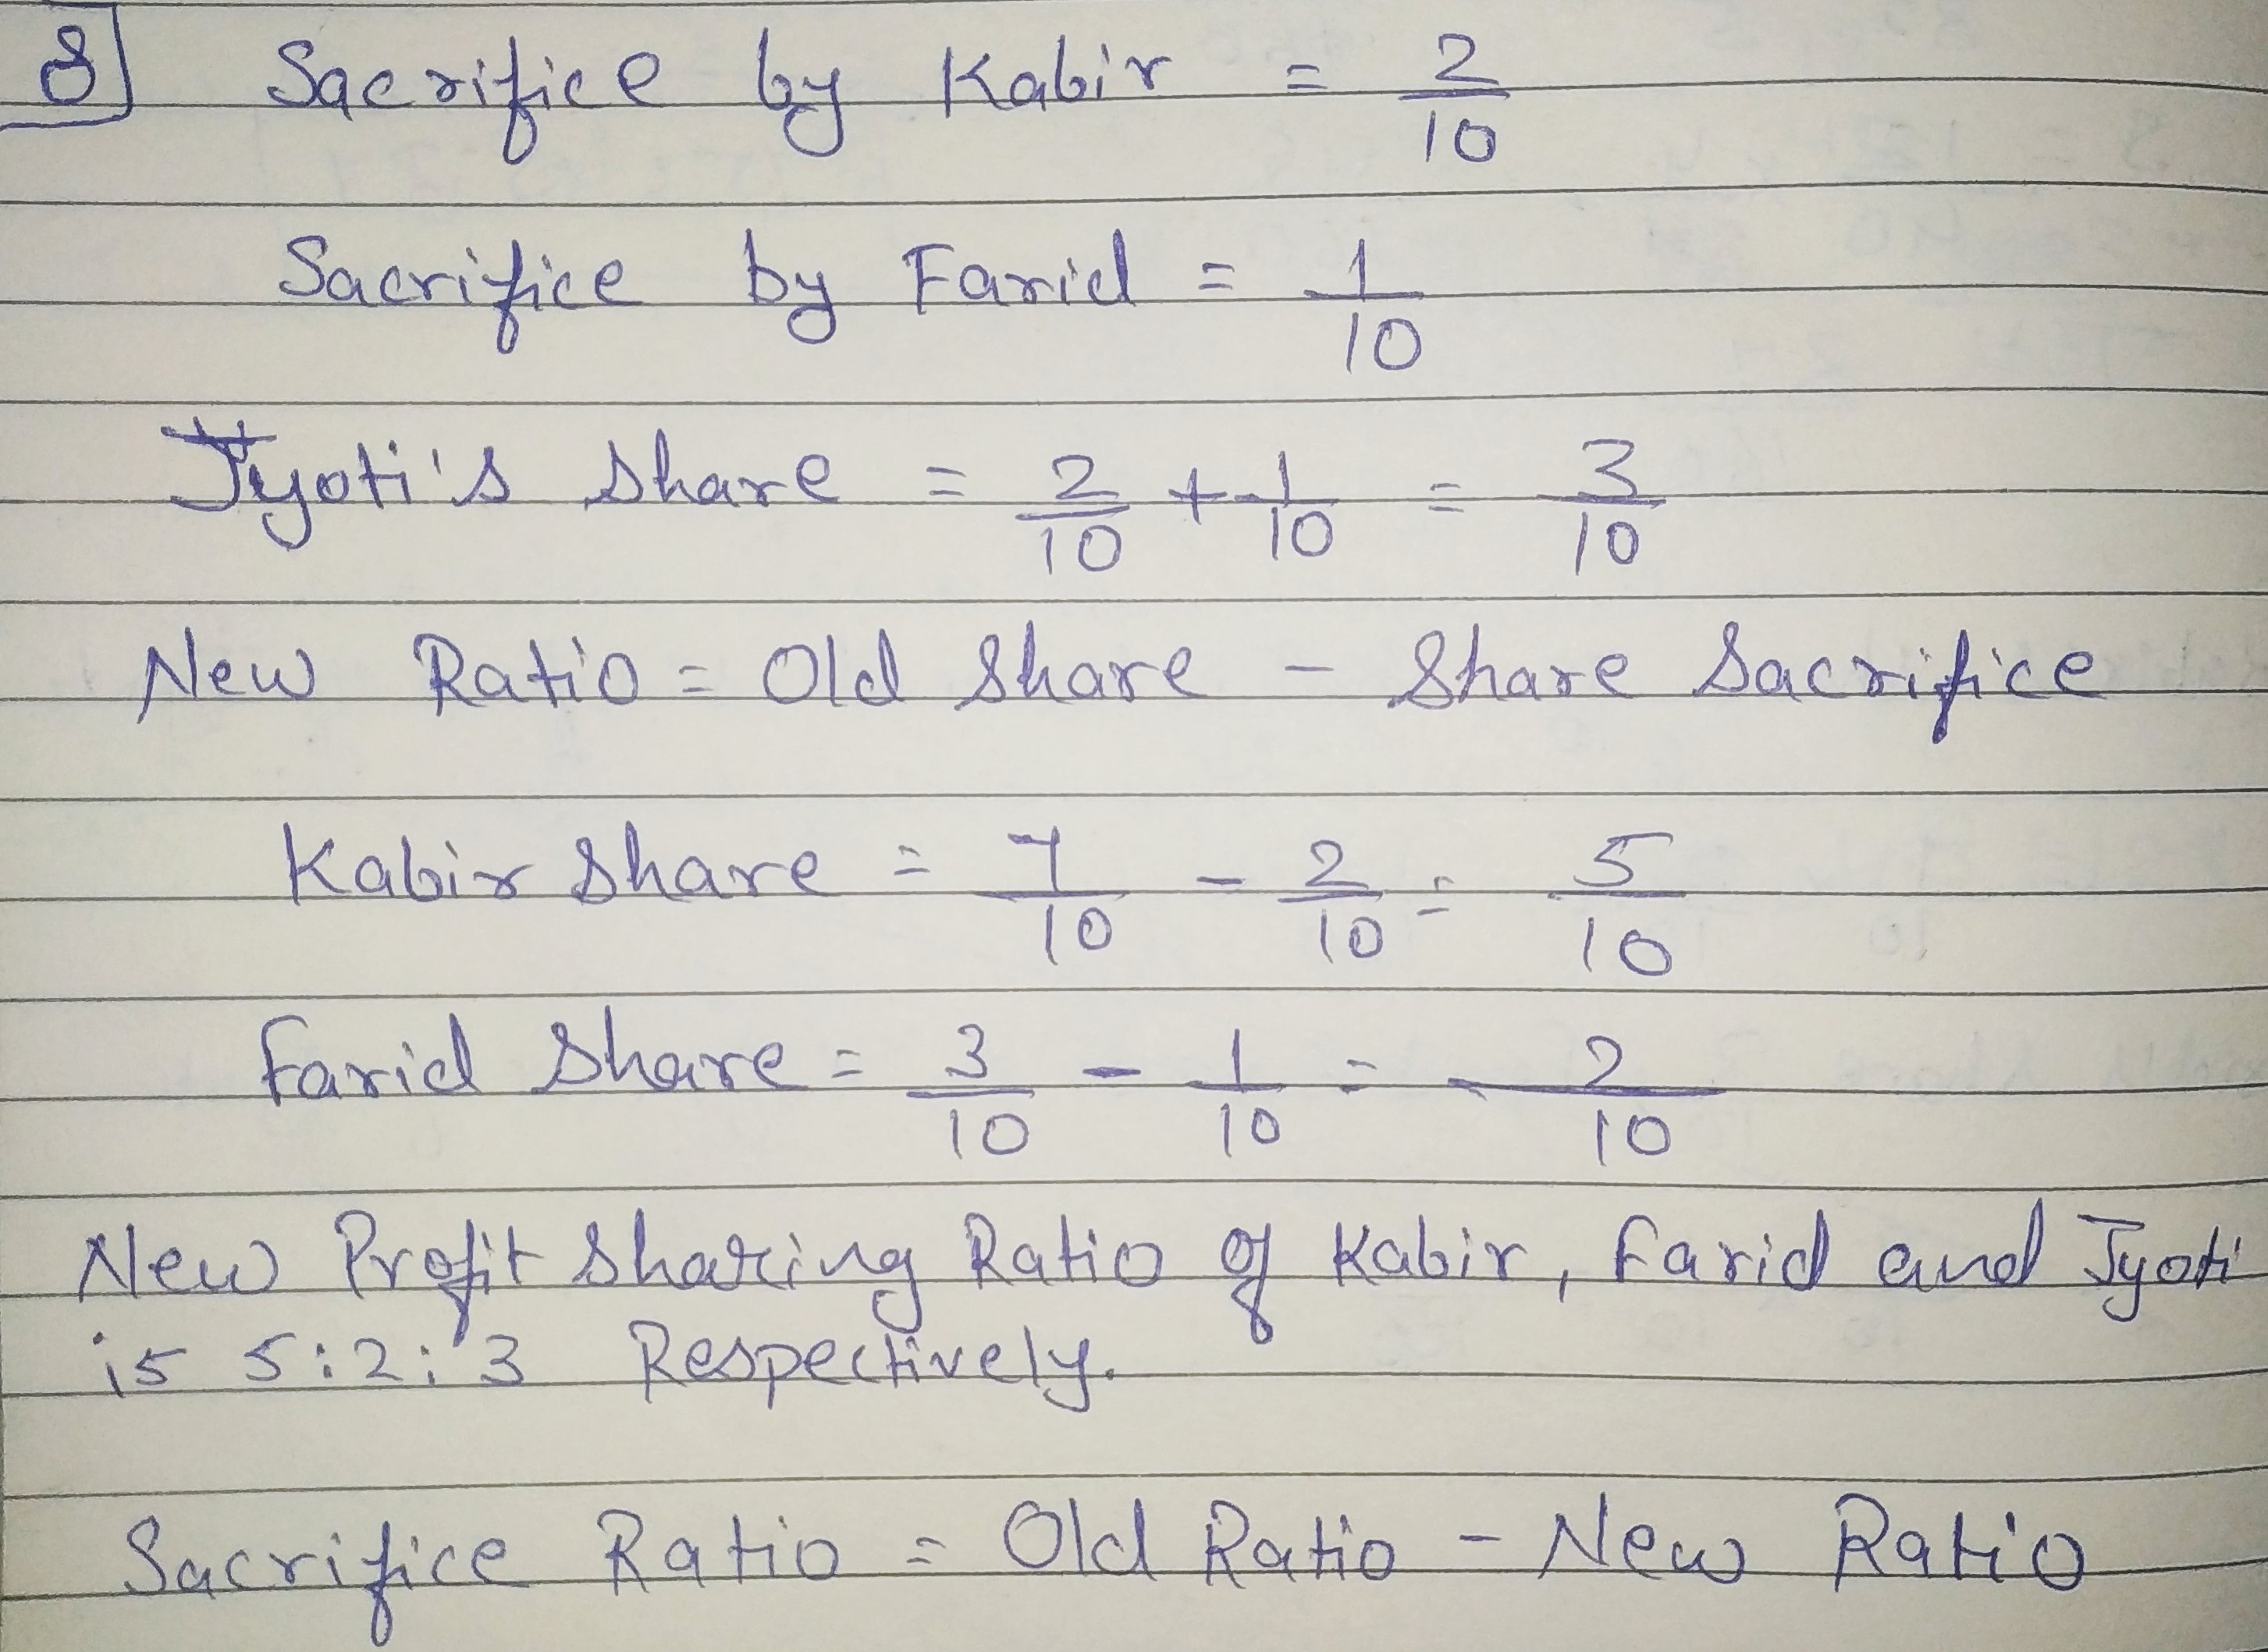 8] Sacrifice by Kabir = 2/10
Sacrifice by Farid = 1/10
Jyoti's Share = 2/10 + 1/10 = 3/10
New Ratio = Old Share - Share Sacrifice
Kabir Share = 7/10 - 2/10 = 5/10
Farid Share = 3/10 - 1/10 = 2/10
New Profit Sharing Ratio of Kabir, Farid and Jyoti
is 5:2:3 Respectively.
Sacrifice Ratio = Old Ratio - New Ratio